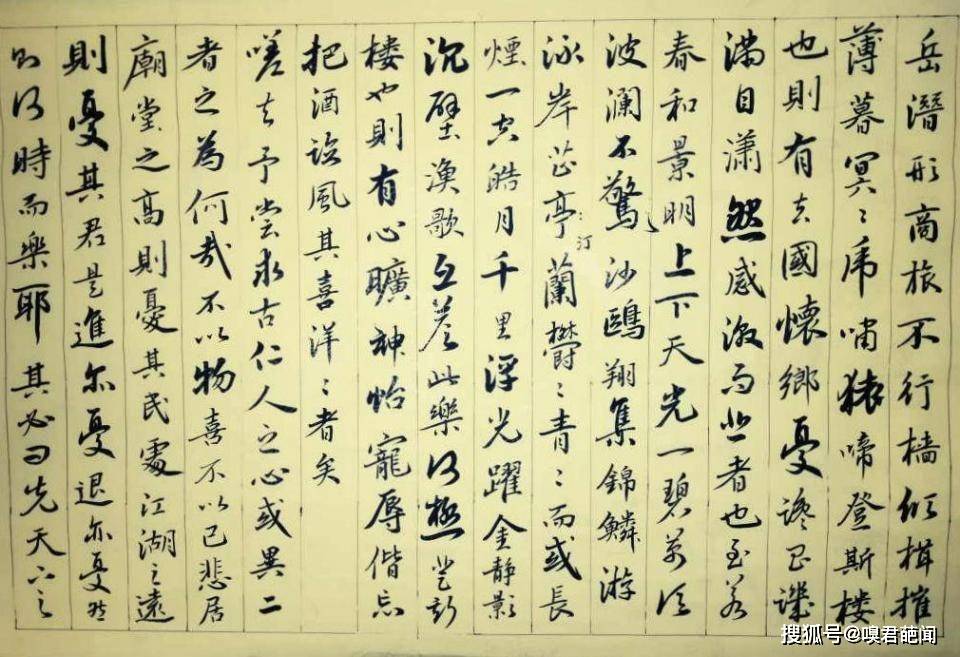 岳潛形商旅不行檣傾楫摧
薄暮冥〻虎嘯猿啼登斯樓
也則有去國懷鄉憂讒畏譏
滿目瀟然感激而悲者也至若
春和景明上下天光一碧萬頃
波瀾不驚沙鷗翔集錦鱗游
泳岸芷亭汀蘭鬱〻青〻而或長
煙一空皓月千里浮光躍金靜影
沉璧漁歌互答此樂何極登斯
樓也則有心曠神怡寵辱偕忘
把酒臨風其喜洋〻者矣
嗟夫予嘗求古仁人之心或異二
者之為何哉不以物喜不以己悲居
廟堂之高則憂其民處江湖之遠
則憂其君是進亦憂退亦憂然
則何時而樂耶其必曰先天下之
搜狐号@嗅君葩闻